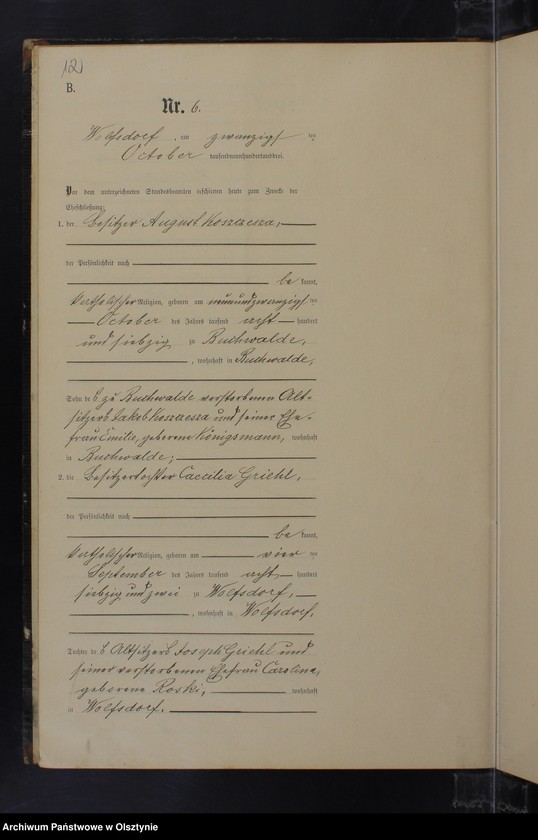 12
B.
Nr. 6.
Wolfsdorf am zwanzigsten
October tausendneunhundertunddrei.
Vor dem unterzeichneten Standesbeamten erschienen heute zum Zwecke der
Eheschließung:
1. der Besitzer August Koszezsza,
der Persönlichkeit nach
bekannt,
katholischer Religion, geboren am neunundzwanzigsten
October des Jahres tausend achthundert
und siebzig zu Buchwalde,
, wohnhaft in Buchwalde,
Sohn des zu Buchwalde verstorbenen Alt-
sitzers Jakob Koszezsza und seiner Ehe-
frau Emilie, geborene Königsmann, wohnhaft
in Buchwalde;
2. die Besitzertochter Caecilia Griehl,
der Persönlichkeit nach
bekannt,
katholischer Religion, geboren am vierten
September des Jahres tausend achthundert
siebzig und zwei zu Wolfsdorf,
, wohnhaft in Wolfsdorf,
Tochter des Altsitzers Joseph Griehl und
seiner verstorbenen Ehefrau Carolina,
geborene Roski, wohnhaft
in Wolfsdorf.
Archiwum Państwowe w Olsztynie